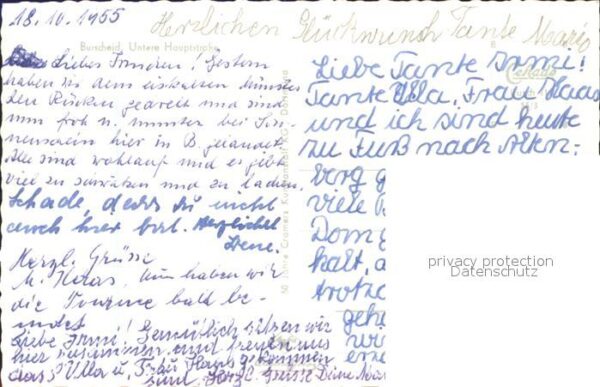 18.10.1955
Herzlichen Glückwunsch Tante Maria
Burscheid, Untere Hauptstraße
Liebes Irmchen! Gestern
haben wir dem eiskalten
den Rücken gekehrt und sind
nun froh u. munter bei
hier in B. gelandet.
Alle sind wohlauf und es gibt
viel zu schwätzen und zu lachen.
Schade, dass du nicht
auch hier bist. Herzlichst
Deine.
Herzl. Grüsse
M. Haas. Nun haben wir
die Tournee bald be-
endet
Liebe Irmi! Gemütlich sitzen wir
hier zusammen und freuen uns
das Ulla u. Frau Haas gekommen
sind. Herzl. Grüsse Deine
Liebe Tante Irmi!
Tante Ulla, Frau Haas
und ich sind heute
zu Fuß nach Alten-
berg g
viele
Dom
halt, a
trotzd
geh
wi
50 Jahre Cramers Kunstanstalt KG • Dortmund
Cekade
privacy protection
Datenschutz